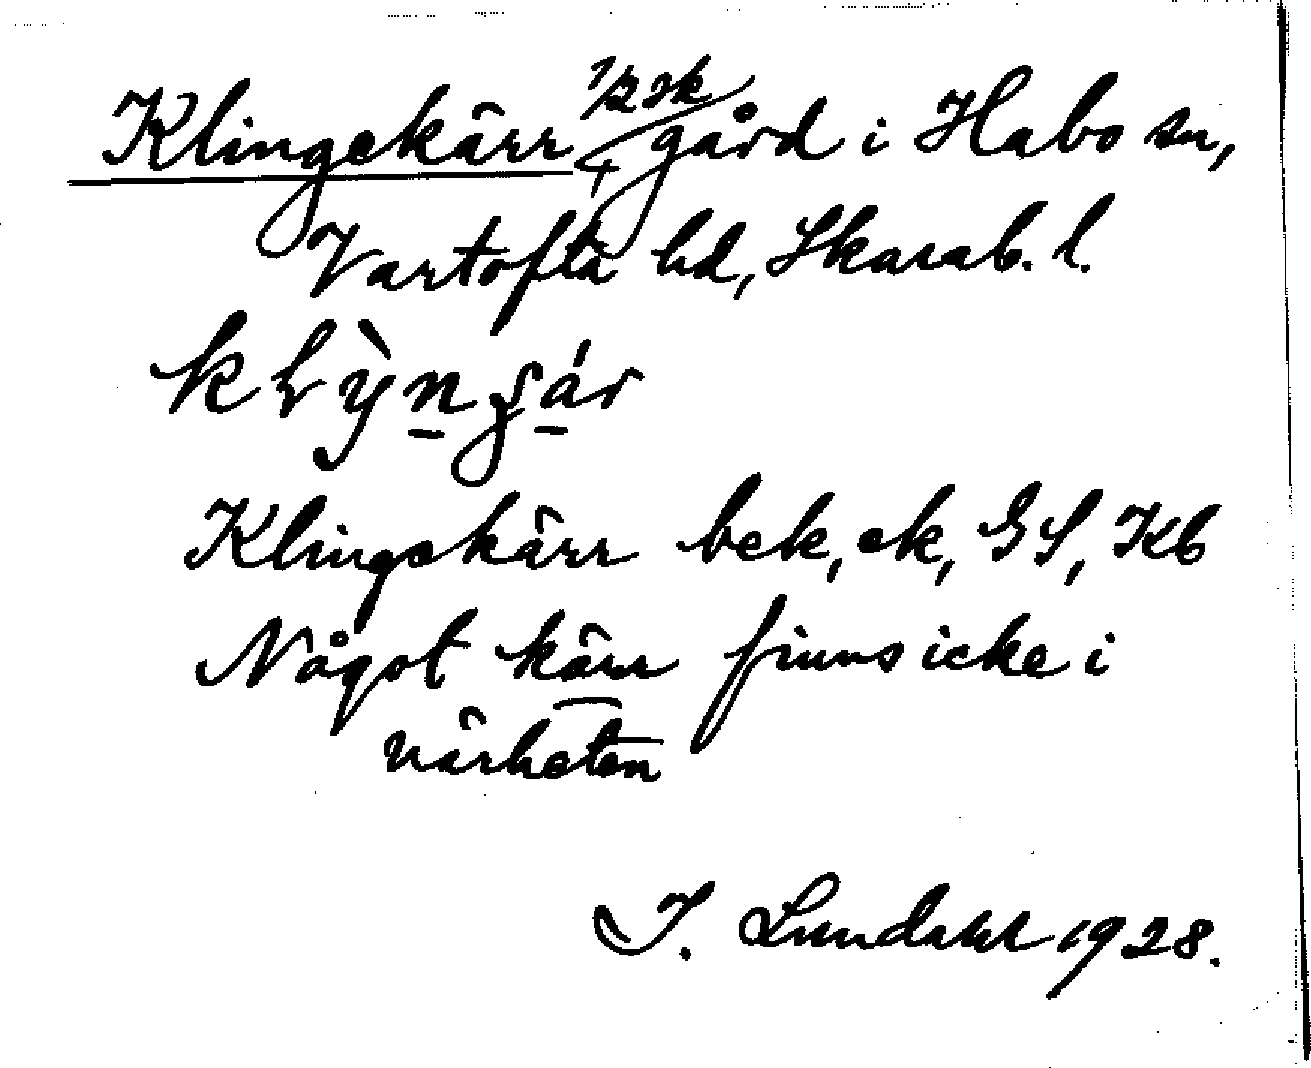 Klingekärr 1/2 sk gård i Habo sn,
Vartofta hd, Skarab. l.
Klingekärr bek, ek, GS, Kb
Något kärr finns icke i
närheten
I. Lundahl 1928.